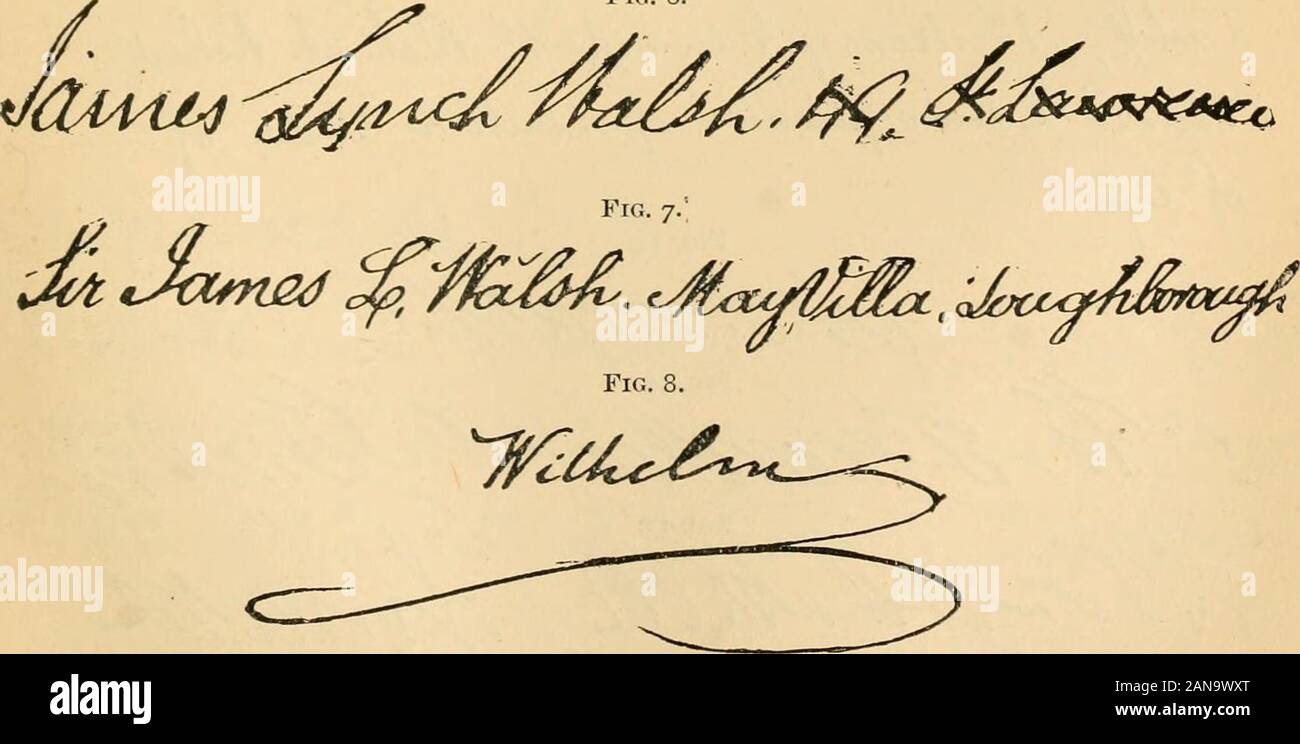 James Lynch Walsh. St. Lawrence
FIG. 7.
Sir James L. Walsh. May Villa, Loughborough
FIG. 8.
Wilhelm
alamy
Image ID: 2AN9WXT
www.alamy.com